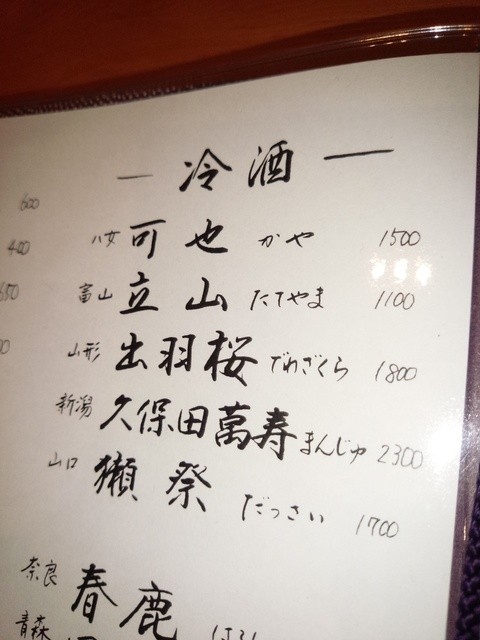 ― 冷酒 ―
八女 可也 かや 1500
富山 立山 たてやま 1100
山形 出羽桜 でわざくら 1800
新潟 久保田萬寿 まんじゅ 2300
山口 獺祭 だっさい 1700
奈良 春鹿
青森
600
400
650